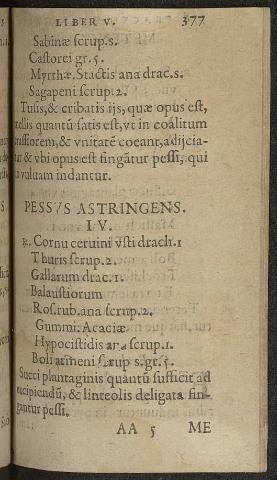 LIBER V. 377
Sabinæ scrup.s.
Castorei gr.5.
Myrrhæ. Stactis ana drac.s.
Sagapeni scrup.2.
Tusis, & cribatis ijs, quæ opus est,
mellis quantũ satis est, vt in coalitum
crassiorem, & vnitatẽ coeant, adijcia-
tur & vbi opus est fingãtur pessi, qui
in vuluam indantur.
PESSVS ASTRINGENS.
IV.
℞. Cornu ceruini vsti drach.1
Thuris scrup.2.
Gallarum drac.1.
Balaustiorum
Ros.rub.ana scrup.2.
Gummi. Acaciæ
Hypocistidis ana scrup.1.
Boli armeni scrup s.gr.5.
Succi plantaginis quantũ sufficit ad
excipiendũ, & linteolis deligata fin-
gantur pessi.
AA 5 ME